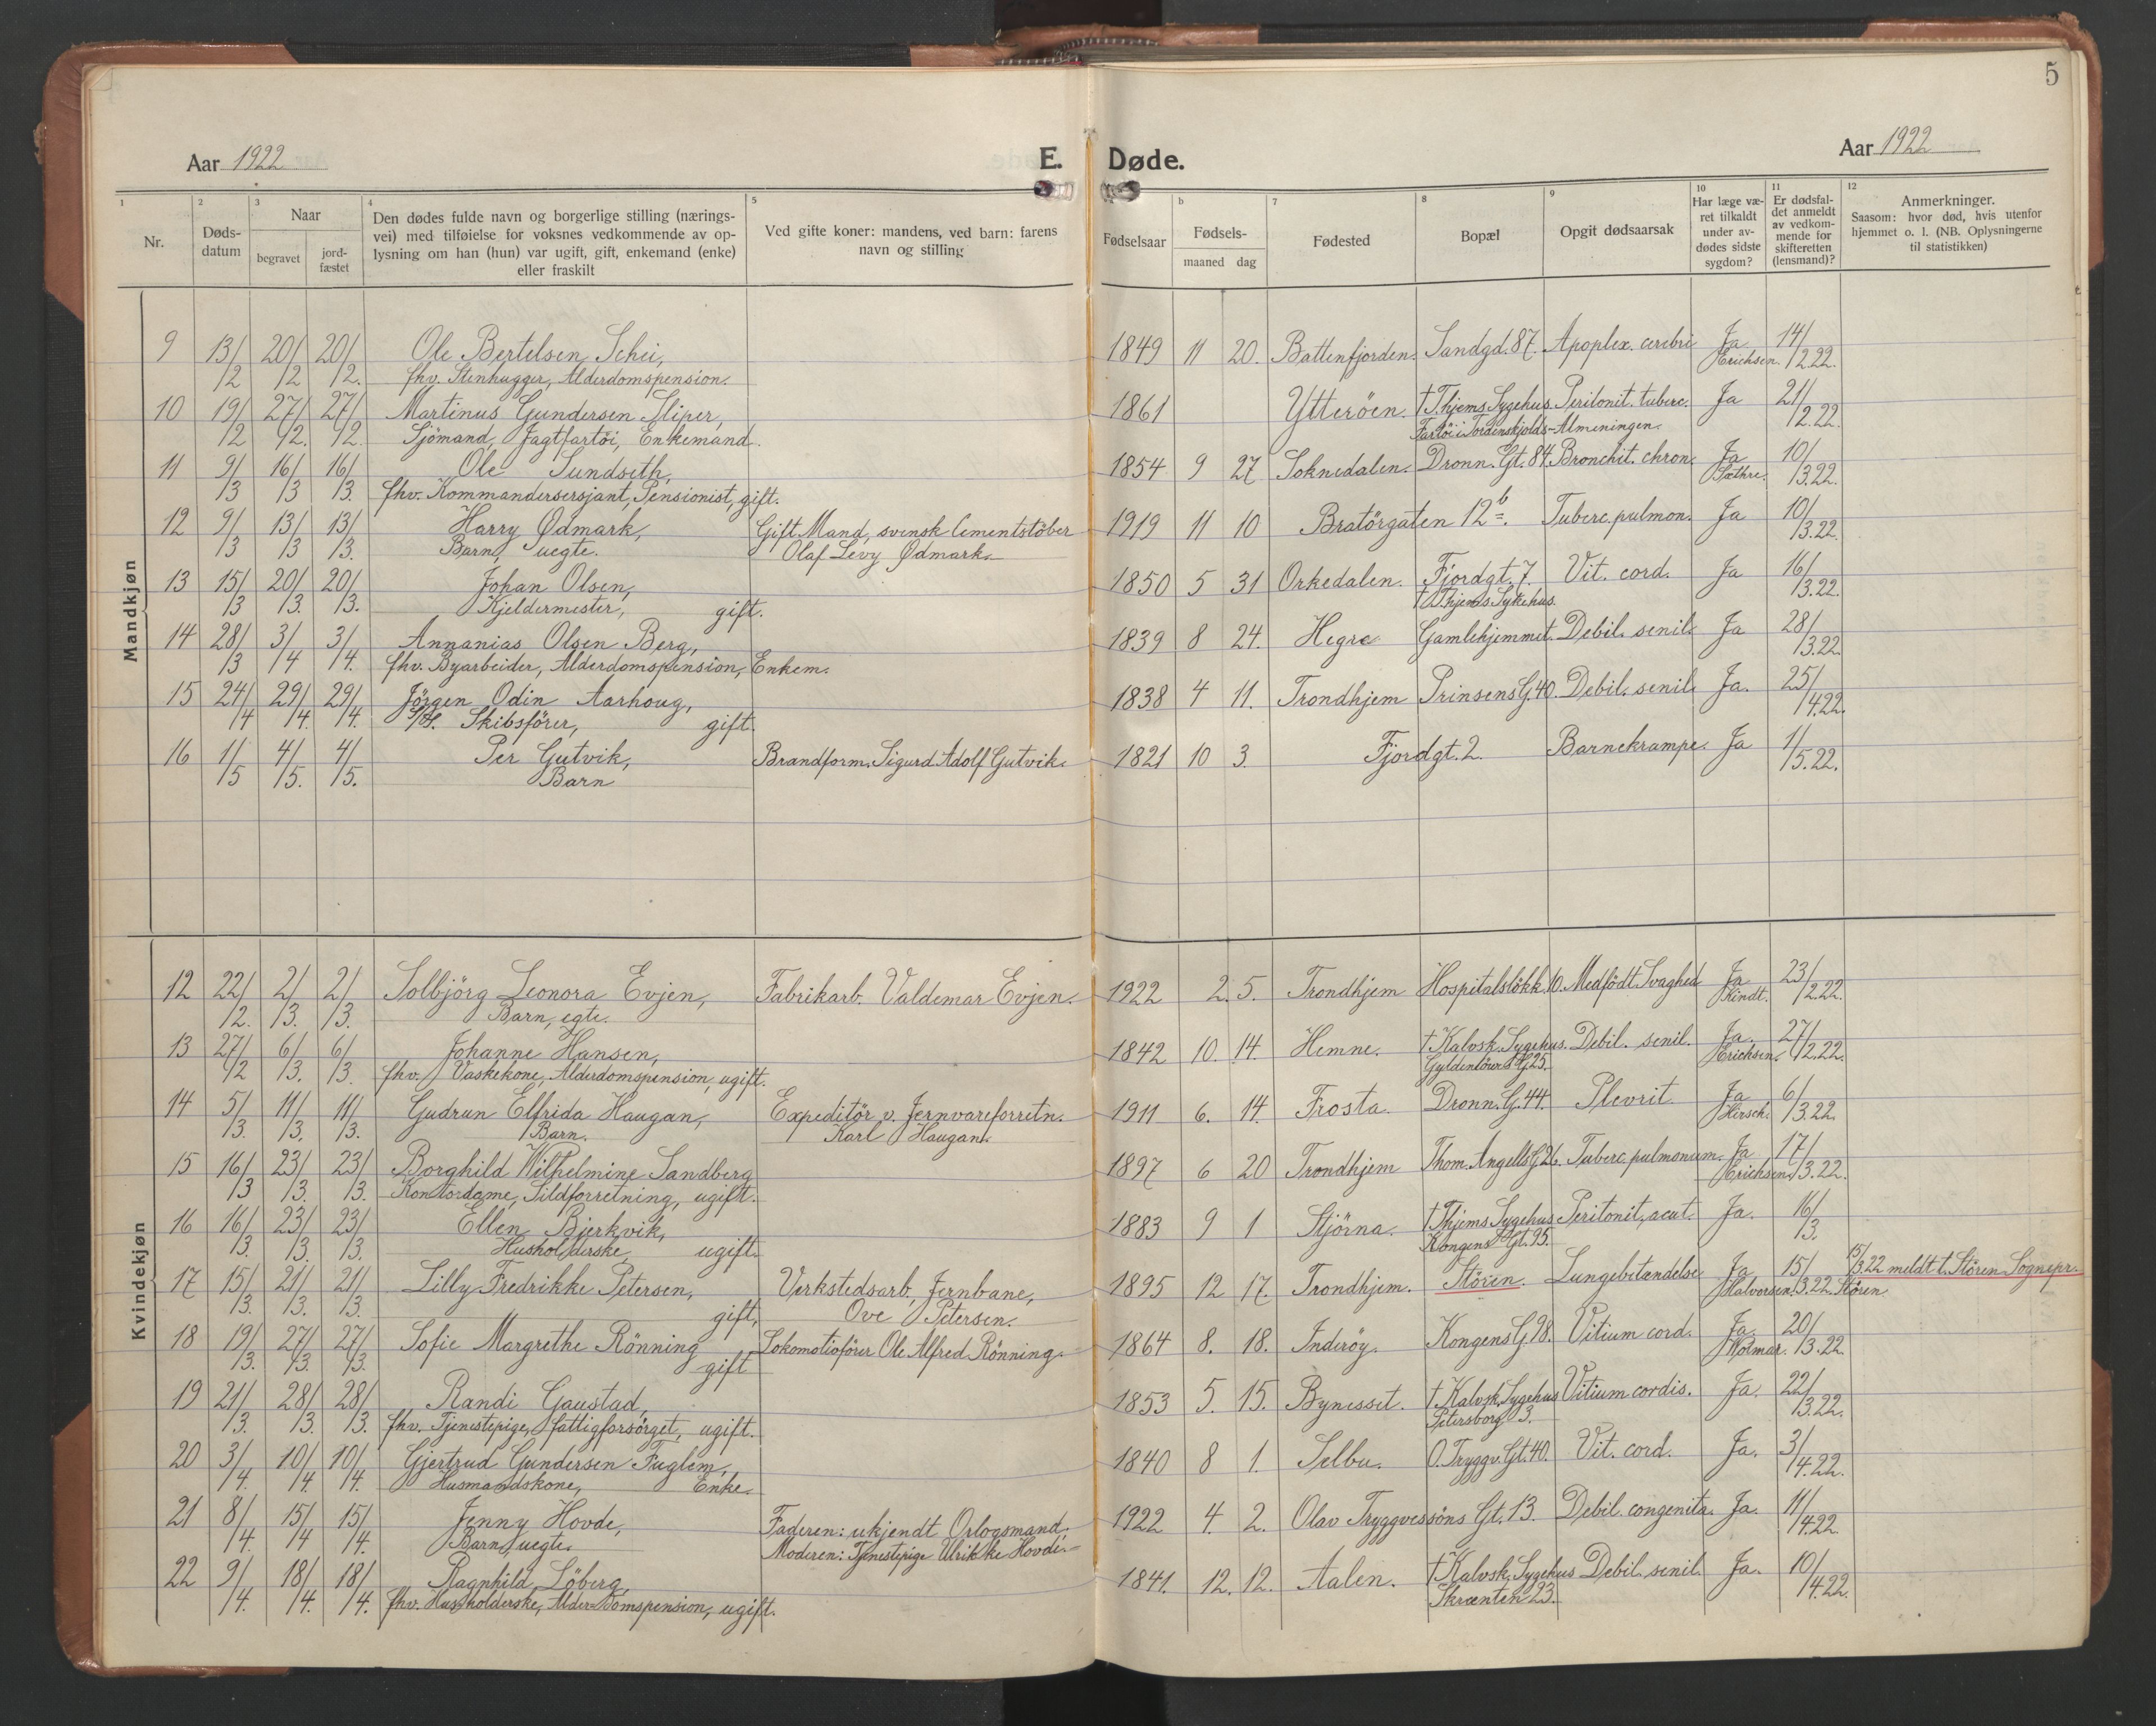 5
Aar 1922
E.
Døde.
Aar 1922
1
2
3
4
5
b
7
8
9
10
11
12
Nr.
Døds-
datum
Naar
begravet
jord-
fæstet
Den dødes fulde navn og borgerlige stilling (nærings-
vei) med tilføielse for voksnes vedkommende av op-
lysning om han (hun) var ugift, gift, enkemand (enke)
eller fraskilt
Ved gifte koner: mandens, ved barn: farens
navn og stilling
Fødselsaar
Fødsels-
maaned dag
Fødested
Bopæl
Opgit dødsaarsak
Har læge væ-
ret tilkaldt
under av-
dødes sidste
sygdom?
Er dødsfal-
det anmeldt
av vedkom-
mende for
skifteretten
(lensmand)?
Anmerkninger.
Saasom: hvor død, hvis utenfor
hjemmet o. l. (NB. Oplysningerne
til statistikken)
Mandkjøn
9 13/ 20/ 20/ Ole Bertelsen Schei, 1849 11 20. Battenfjorden. Sandgd. 87. Apoplex. cerebri Ja 14/
/2 /2 /2. fhv. Stenhugger, Alderdomspension. Erichsen. /2.22.
10 19/ 27/ 27/ Martinus Gundersen Sliper, 1861 Ytteröen. † T.hjems Sygehus. Peritonit. tuberc. Ja 21/
/2 /2. /2. Sjömand, Jagtfartöi, Enkemand. Fartöi i Tordenskjolds-Almeningen. /2.22.
11 9/ 16/ 16/ Ole Sundseth, 1854 9 27 Soknedalen. Dronn. Gt. 84. Bronchit. chron. Ja 10/
/3 /3 /3. fhv. Kommandersersjant, Pensionist, gift. Sæthre. /3.22.
12 9/ 13/ 13/ Harry Ødmark, Gift Mand, svensk Cementstöber 1919 11 10 Bratörgaten 12b. Tuberc. pulmon. Ja 10/
/3 /3 /3. Barn, uegte. Olaf Levy Ødmark. /3.22.
13 15/ 20/ 20/ Johan Olsen, 1850 5 31 Orkedalen. Fjordgt. 7. Vit. cord. Ja 16/
/3 /3. /3. Kjeldermester, gift. † T.hjems Sykehus. /3.22.
14 28/ 3/ 3/ Annanias Olsen Berg, 1839 8 24. Hegra Gamlehjemmet. Debil. senil. Ja 28/
/3 /4 /4. fhv. Byarbeider, Alderdomspension, Enkem. /3.22.
15 24/ 29/ 29/ Jörgen Odin Aarhoug, 1838 4 11. Trondhjem Prinsens G. 40. Debil. senil. Ja. 25/
/4 /4. /4. Skibsförer, gift. /4.22.
16 1/ 4/ 4/ Per Gutvik, Brandform. Sigurd Adolf Gutvik. 1821 10 3. Fjordgt. 2. Barnekrampe. Ja 1/
/5 /5. /5. Barn /5.22.
Kvindekjøn
12 22/ 2/ 2/ Solbjörg Leonora Evjen, Fabrikarb. Valdemar Evjen. 1922 2. 5. Trondhjem Hospitalslökk. 10. Medfödt Svaghed Ja 23/
/2. /3. /3. Barn, egte. Kindt. /2.22.
13 27/ 6/ 6/ Johanne Hansen, 1842 10. 14. Hemne. † Kalvsk. Sygehus. Debil. senil. Ja. 27/
/2 /3. /3. fhv. Vaskekone, Alderdomspension, ugift. Gyldenlöves G. 25. Erichsen. /2.22.
14 5/ 11/ 11/ Gudrun Elfrida Haugan, Expeditör v. Jernvareforretn. 1911 6. 14. Frosta. Dronn. G. 44. Plevrit. Ja 6/
/3. /3. /3. Barn. Karl Haugan. Hirsch. /3.22.
15 16/ 23/ 23/ Borghild Wilhelmine Sandberg 1897 6 20 Trondhjem Thom. Angells G. 26. Tuberc. pulmonum. Ja 17/
/3 /3. /3. Kontordame, Sildforretning, ugift. Erichsen. /3.22.
16 16/ 23/ 23/ Ellen Bjerkvik, 1883 9 1 Stjörna. † T.hjems Sygehus Peritonit. acut. Ja. 16/
/3. /3. /3. Husholderske, ugift. Kongens Gt. 95. /3.
17 15/ 21/ 21/ Lilly Fredrikke Petersen, Verkstedsarb., Jernbane, 1895 12 17. Trondhjem. Stören. Lungebetændelse Ja 15/ 15/3.22 meldt t. Stören Sognepr.
/3. /3. /3. gift, Ove Petersen. Halvorsen /3.22. Stören
18 19/ 27/ 27/ Sofie Margrethe Rönning Lokomotivförer Ole Alfred Rönning. 1864 8. 18. Inderöy. Kongens G. 98. Vitium cord. Ja 20/
/3. /3. /3. gift Holmar. /3.22.
19 21/ 28/ 28/ Randi Gaustad, 1853 5. 15. Bynesset. † Kalvsk. Sygehus Vitium cordis. Ja. 22/
/3. /3. /3. fhv. Tjenestepige, fattigforsörget, ugift. Petersborg 3. /3.22.
20 3/ 10/ 10/ Gjertrud Gundersen Fuglem, 1840 8 1. Selbu. O. Tryggv. Gt. 40. Vit. cord. Ja. 3/
/4. /4. /4. Husmandskone, Enke. /4.22.
21 8/ 15/ 15/ Jenny Hovde, Faderen: ukjendt Orlogsmand, 1922 4. 2. Olav Tryggvessöns Gt. 13. Debil. congenita. Ja. 11/
/4. /4 /4. Barn, uegte. Moderen: Tjenestepige Ulrikke Hovde. /4.22.
22 9/ 18/ 18/ Ragnhild Löberg, 1841. 12. 12. Aalen. † Kalvsk. Sygehus Debil. senil. Ja. 10/
/4. /4. /4. fhv. Husholderske, Alderdomspension, ugift. Skrænten 23. /4.22.